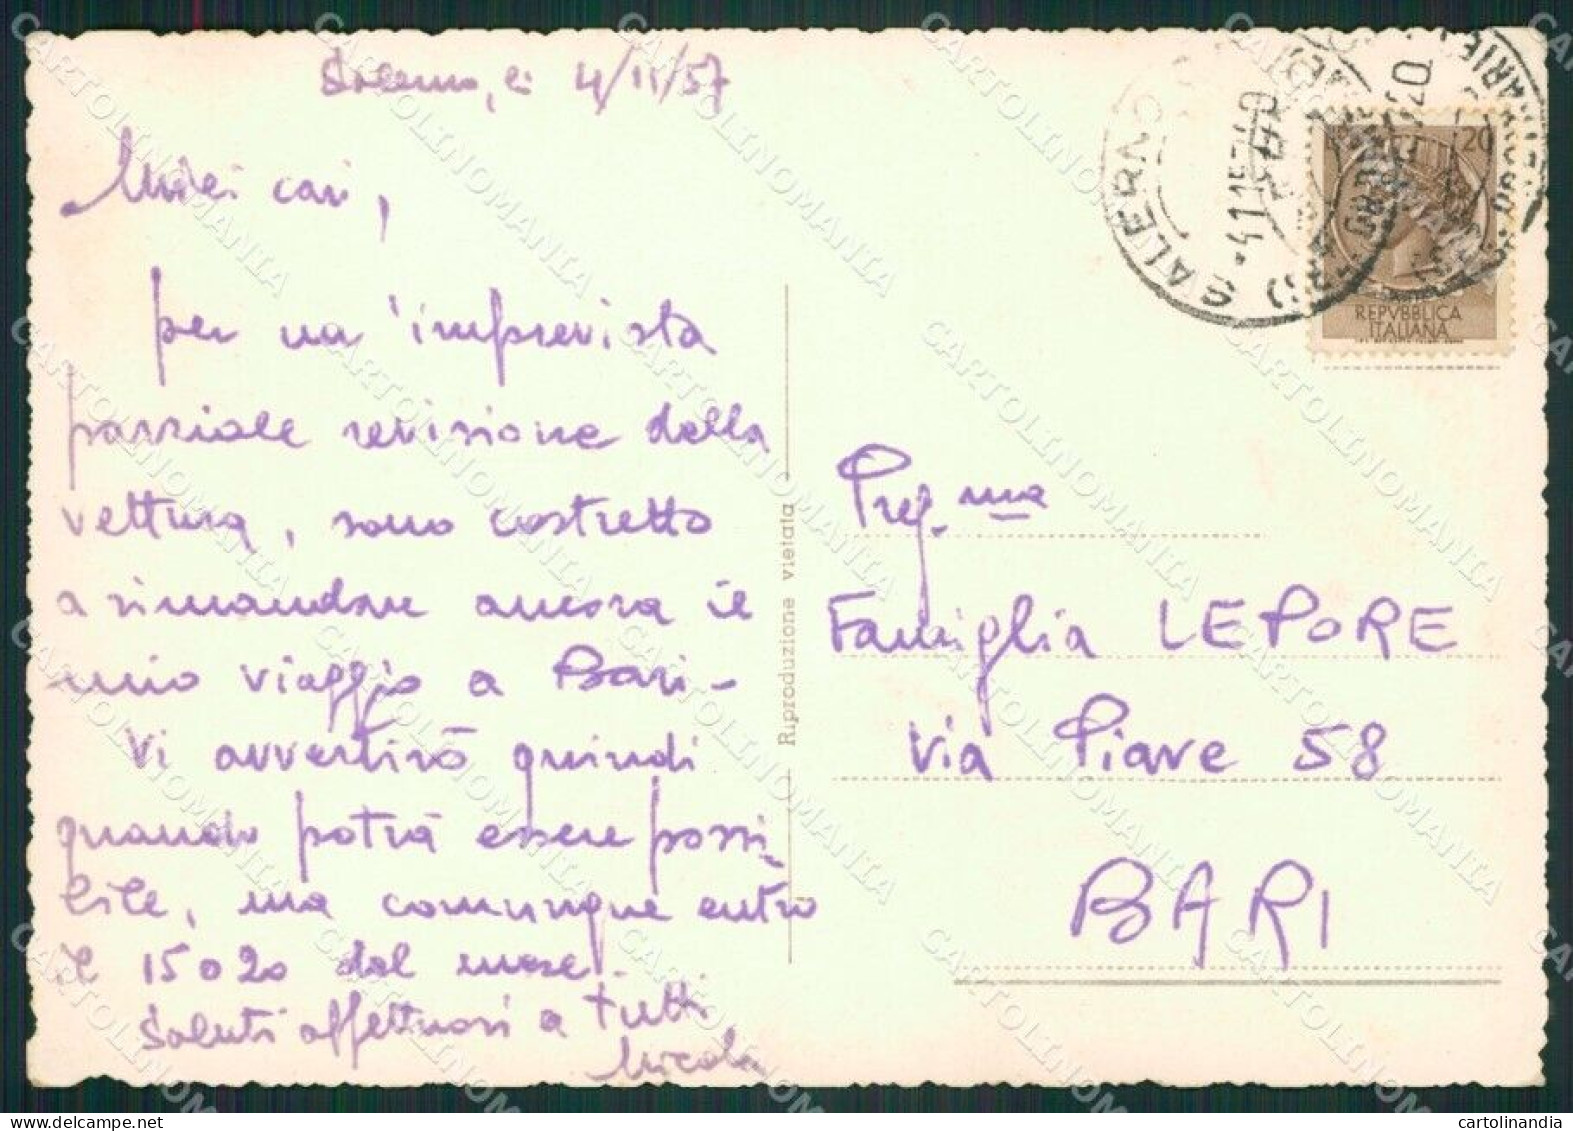 Salerno, li 4/11/57
Miei cari,
per un'imprevista
parziale revisione della
vettura, sono costretto
a rimandare ancora il
mio viaggio a Bari-
Vi avvertirò quindi
quando potrà essere possi-
bile, ma comunque entro
il 15 o 20 del mese.
Saluti affettuosi a tutti
Nicola
Riproduzione vietata
SALERNO
20
REPVBBLICA
ITALIANA
Preg.ma
Famiglia LEPORE
via Piave 58
BARI
CARTOLINOMANIA
cartolinandia